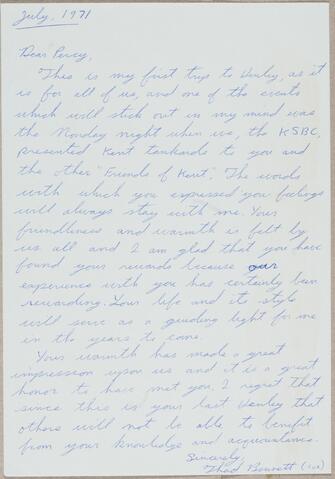 July, 1971
Dear Percy,
This is my first trip to Henley, as it
is for all of us, and one of the events
which will stick out in my mind was
the Monday night when we, the KSBC,
presented Kent tankards to you and
the other "Friends of Kent". The words
with which you expressed you feelings
will always stay with me. Your
friendliness and warmth is felt by
us all and I am glad that you have
found your rewards because our
experience with you has certainly been
rewarding. Your life and its style
will serve as a guiding light for me
in the years to come.
Your warmth has made a great
impression upon us and it is a great
honor to have met you. I regret that
since this is your last Henley that
others will not be able to benefit
from your knowledge and acquaintance.
Sincerely,
Thad Bennett